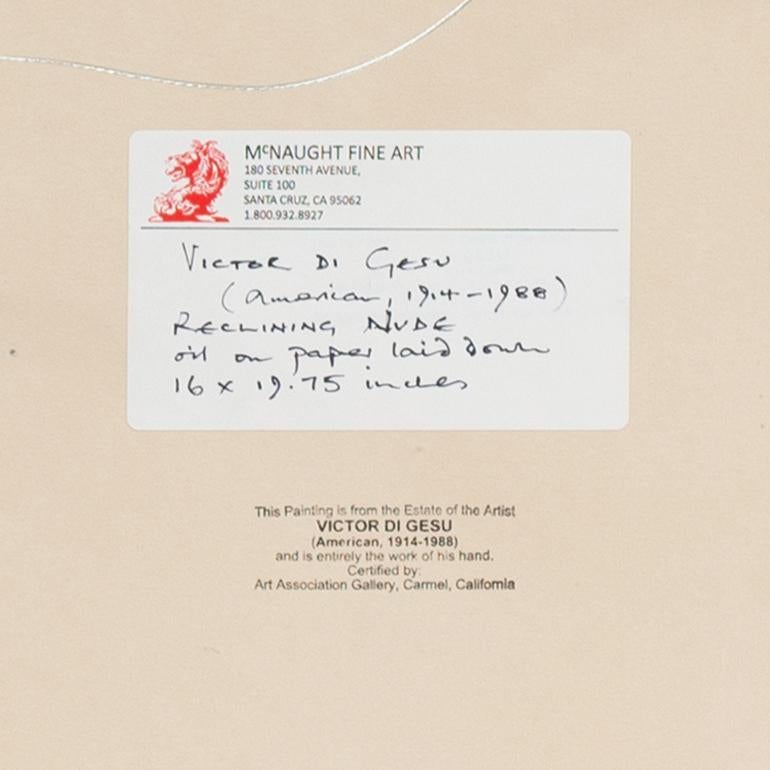 McNAUGHT FINE ART
180 SEVENTH AVENUE,
SUITE 100
SANTA CRUZ, CA 95062
1.800.932.8927
VICTOR DI GESU
(American, 1914-1988)
RECLINING NUDE
oil on paper laid down
16 x 19.75 inches
This Painting is from the Estate of the Artist
VICTOR DI GESU
(American, 1914-1988)
and is entirely the work of his hand.
Certified by:
Art Association Gallery, Carmel, California